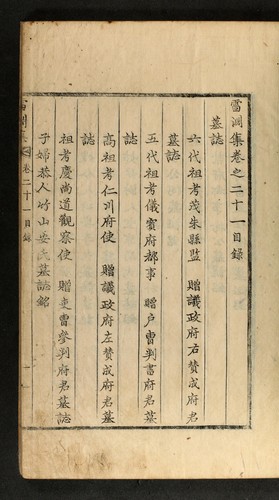 雷淵集卷之二十一目錄
墓誌
六代祖考茂朱縣監　贈議政府右贊成府君
墓誌
五代祖考儀賓府都事　贈戶曹判書府君墓
誌
高祖考仁川府使　贈議政府左贊成府君墓
誌
祖考慶尚道觀察使　贈吏曹參判府君墓誌
子婦恭人竹山安氏墓誌銘
淵集
卷二十一目錄
一